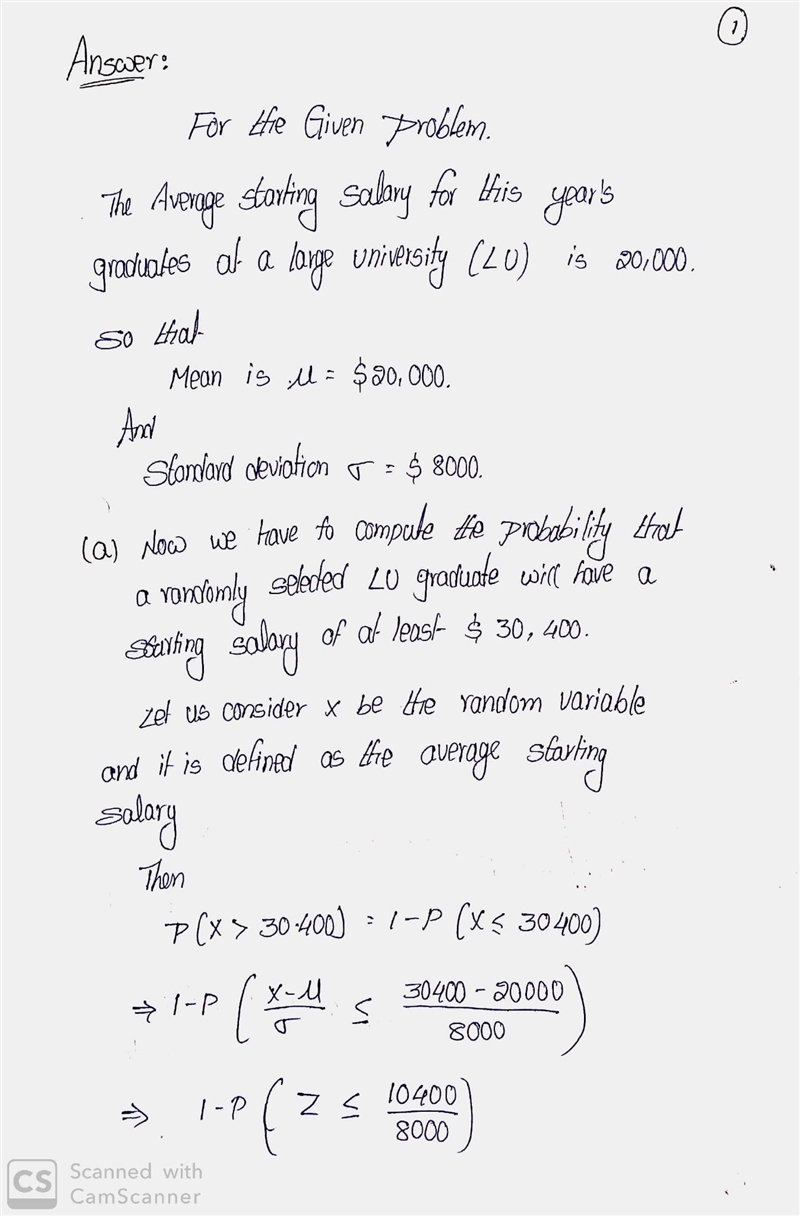 1
Answer:
For the Given problem.
The Average starting salary for this year's
graduates at a large university (LU) is 20,000.
So that
Mean is μ = $20,000.
And
Standard deviation σ = $8000.
(a) Now we have to compute the probability that
a randomly selected LU graduate will have a
starting salary of at least $30,400.
Let us consider x be the random variable
and it is defined as the average starting
salary
Then
P(X > 30400) = 1-P (X ≤ 30400)
⇒ 1-P ( (X-μ)/σ ≤ (30400-20000)/8000 )
⇒ 1-P ( Z ≤ 10400/8000 )
CS Scanned with
CamScanner